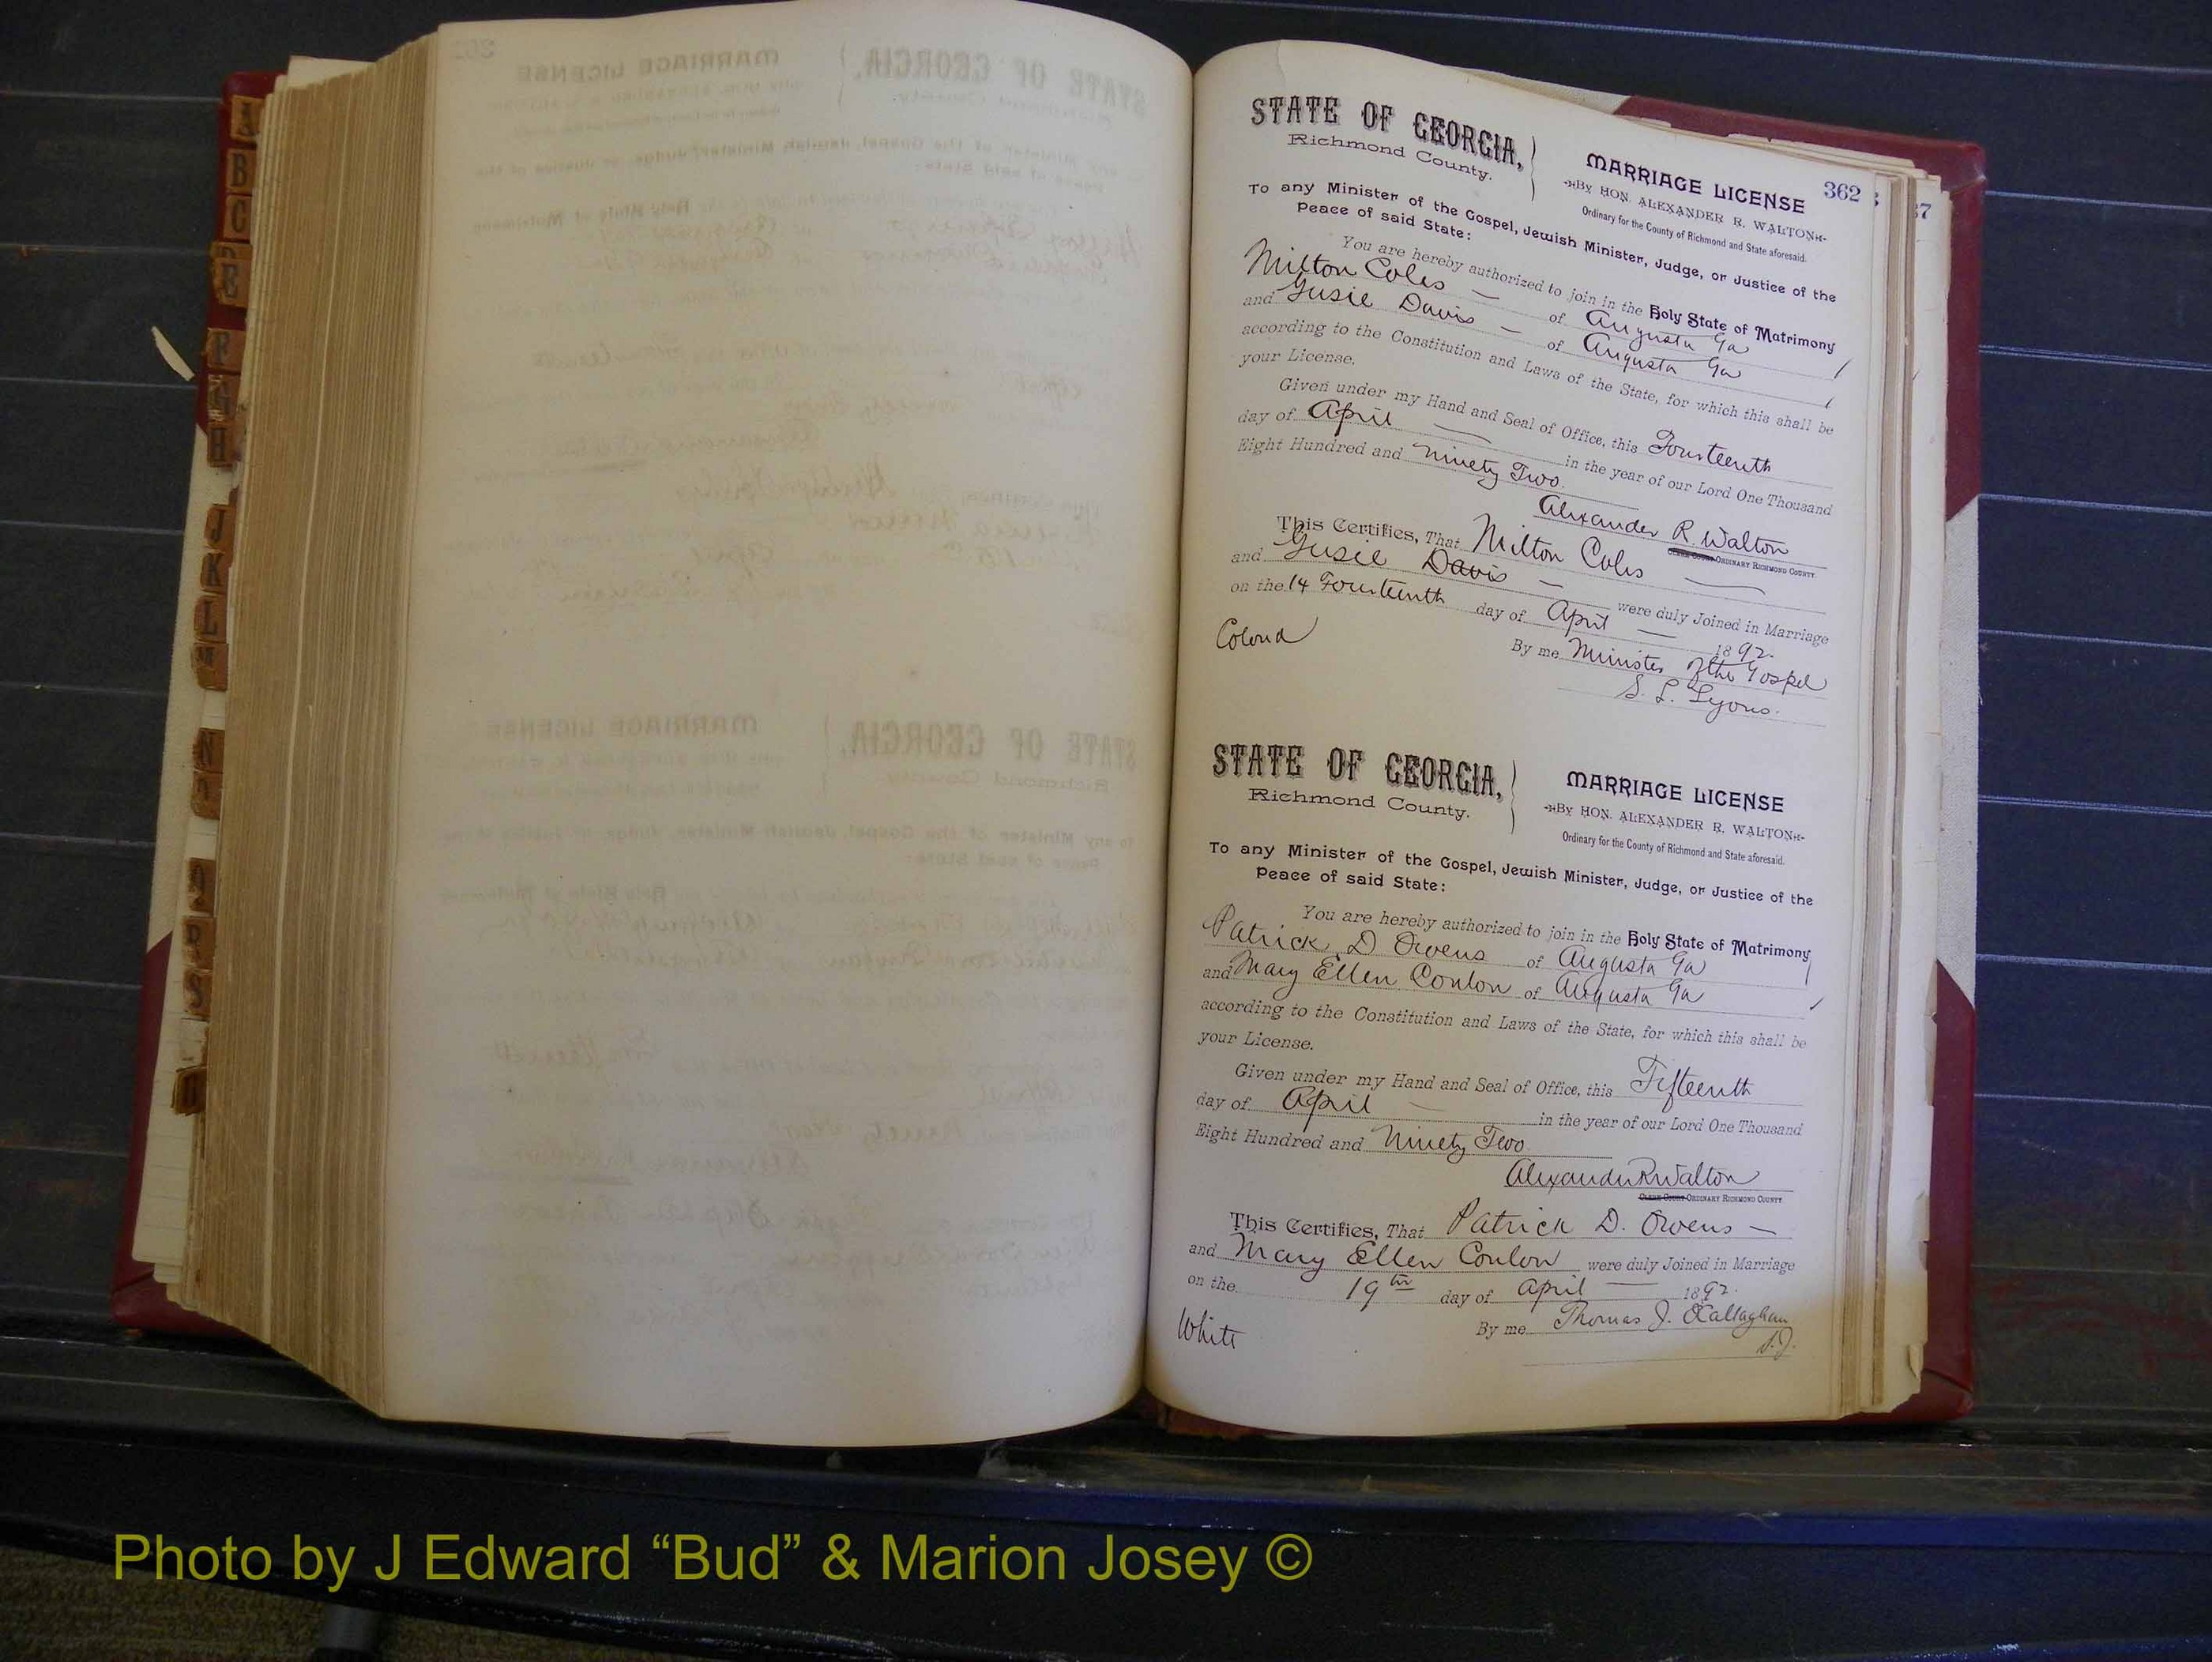 A
B
C
D
E
F
G
H
J
K
L
M
N
O
Q
R
S
362
37
STATE OF GEORGIA,
Richmond County.
MARRIAGE LICENSE
By HON. ALEXANDER R. WALTON
Ordinary for the County of Richmond and State aforesaid.
To any Minister of the Gospel, Jewish Minister, Judge, or Justice of the
Peace of said State:
You are hereby authorized to join in the Holy State of Matrimony
Milton Coles of Augusta Ga
and Gusie Davis of Augusta Ga
according to the Constitution and Laws of the State, for which this shall be
your License.
Given under my Hand and Seal of Office, this Fourteenth
day of April in the year of our Lord One Thousand
Eight Hundred and Ninety Two.
Alexander R. Walton
CLERK COURT ORDINARY RICHMOND COUNTY.
This Certifies, That Milton Coles
and Gusie Davis were duly Joined in Marriage
on the 14 Fourteenth day of April 1892.
Colord
By me Minister of the Gospel
S. L. Lyons.
STATE OF GEORGIA,
Richmond County.
MARRIAGE LICENSE
By HON. ALEXANDER R. WALTON
Ordinary for the County of Richmond and State aforesaid.
To any Minister of the Gospel, Jewish Minister, Judge, or Justice of the
Peace of said State:
You are hereby authorized to join in the Holy State of Matrimony
Patrick D Owens of Augusta Ga
and Mary Ellen Conlon of Augusta Ga
according to the Constitution and Laws of the State, for which this shall be
your License.
Given under my Hand and Seal of Office, this Fifteenth
day of April in the year of our Lord One Thousand
Eight Hundred and Ninety Two.
Alexander R Walton
CLERK COURT ORDINARY RICHMOND COUNTY
This Certifies, That Patrick D. Owens
and Mary Ellen Conlon were duly Joined in Marriage
on the 19th day of April 1892.
White
By me Thomas J. O'Callaghan
S.J.
Photo by J Edward “Bud” & Marion Josey ©